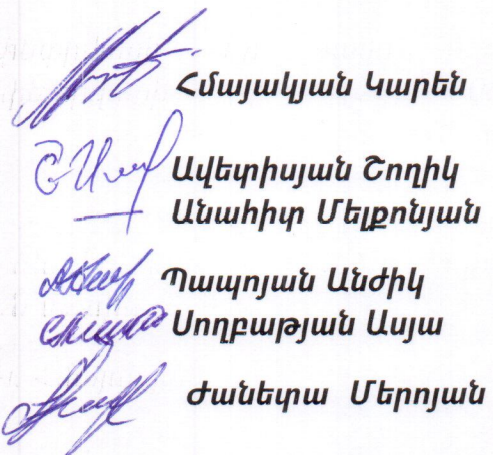 Հմայակյան Կարեն
Ավետիսյան Շողիկ
Անահիտ Մելքոնյան
Պապոյան Անժիկ
Սողբաթյան Ասյա
Ժանետա Մերոյան